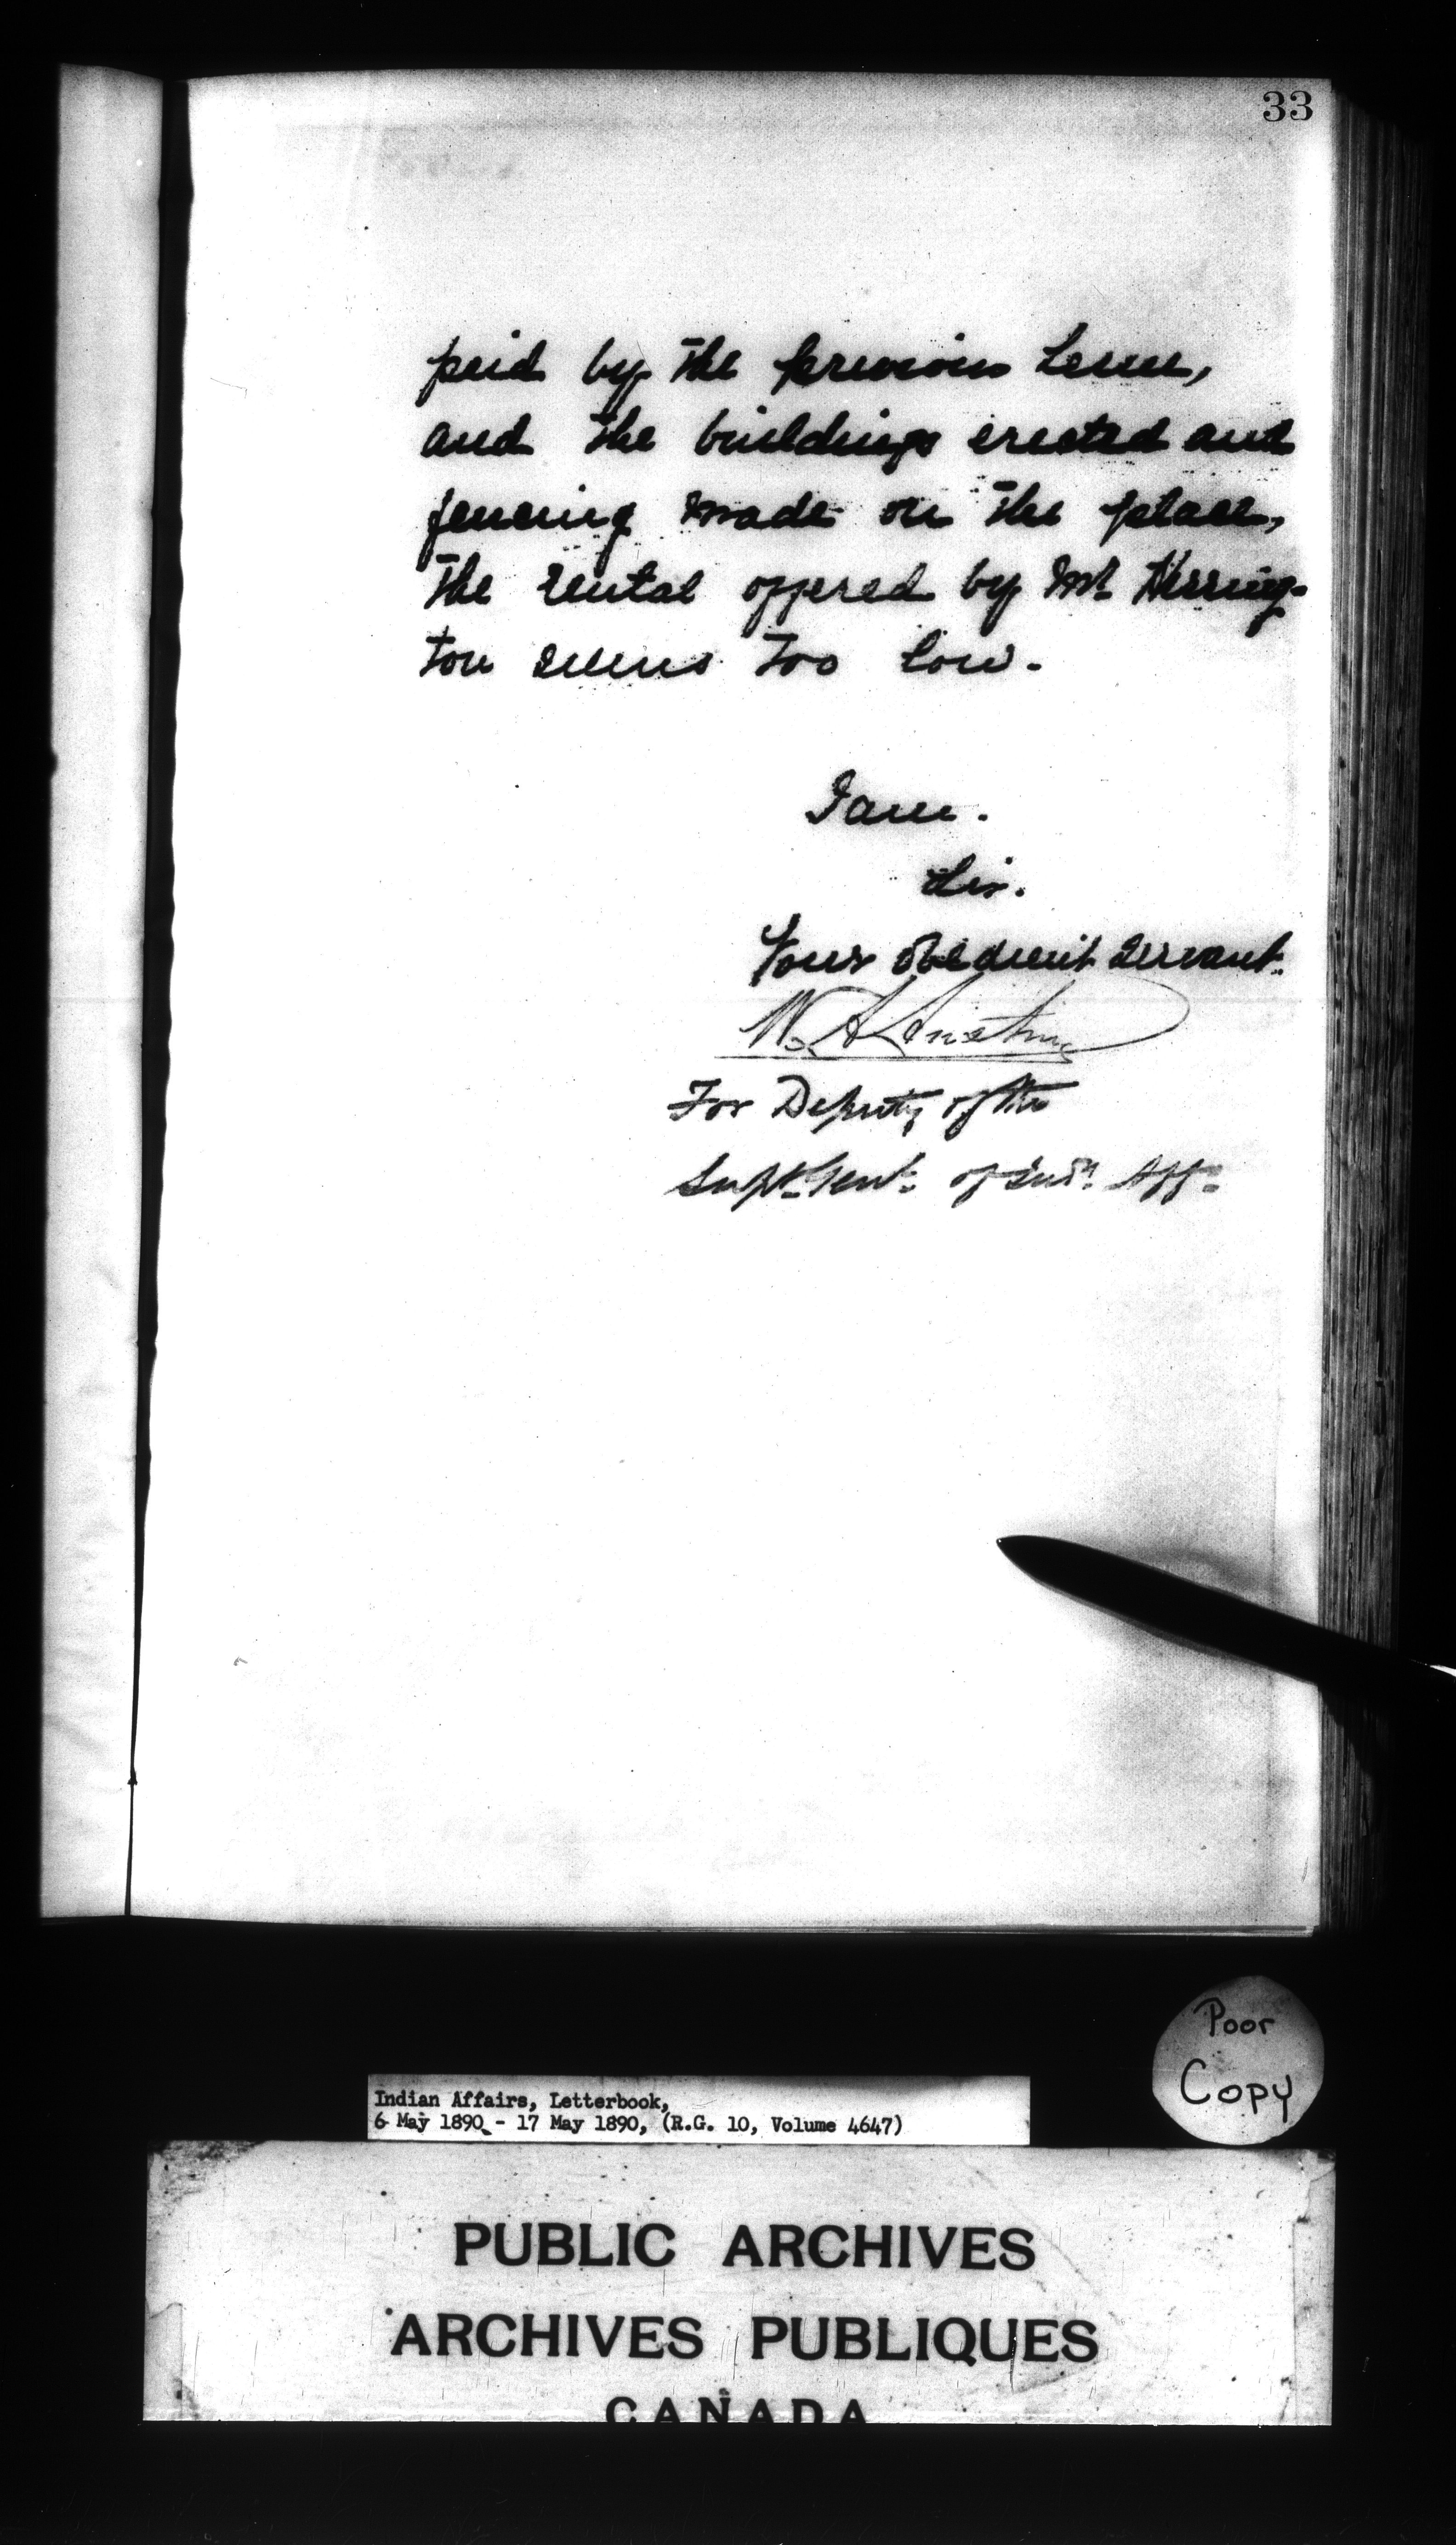 33
paid by the previous Lessee,
and the buildings erected and
fencing made on the place,
the rental offered by Mr. Herring-
ton seems too low.
I am.
Sir.
Your obedient servant.
For Deputy of the
Supt. Genl. of Indn. Aff.
Poor
Copy
Indian Affairs, Letterbook,
6 May 1890 - 17 May 1890, (R.G. 10, Volume 4647)
PUBLIC ARCHIVES
ARCHIVES PUBLIQUES
CANADA